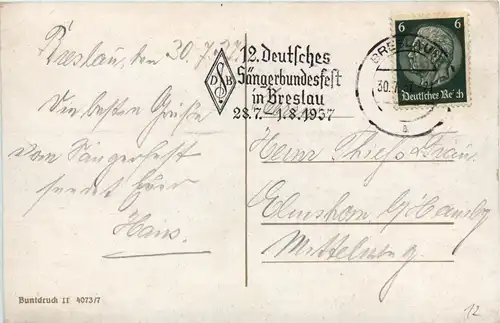 Breslau, den 30.7.37.
12. Deutsches
Sängerbundesfest
in Breslau
28.7.–1.8.1937
D S B
BRESLAU
30.7.
a
6 6
Deutsches Reich
Die besten Grüße
vom Sängerfest
sendet Euer
Hans.
Heinr. Thieß
Elmshorn b/Hamburg
Buntdruck II 4073/7
12